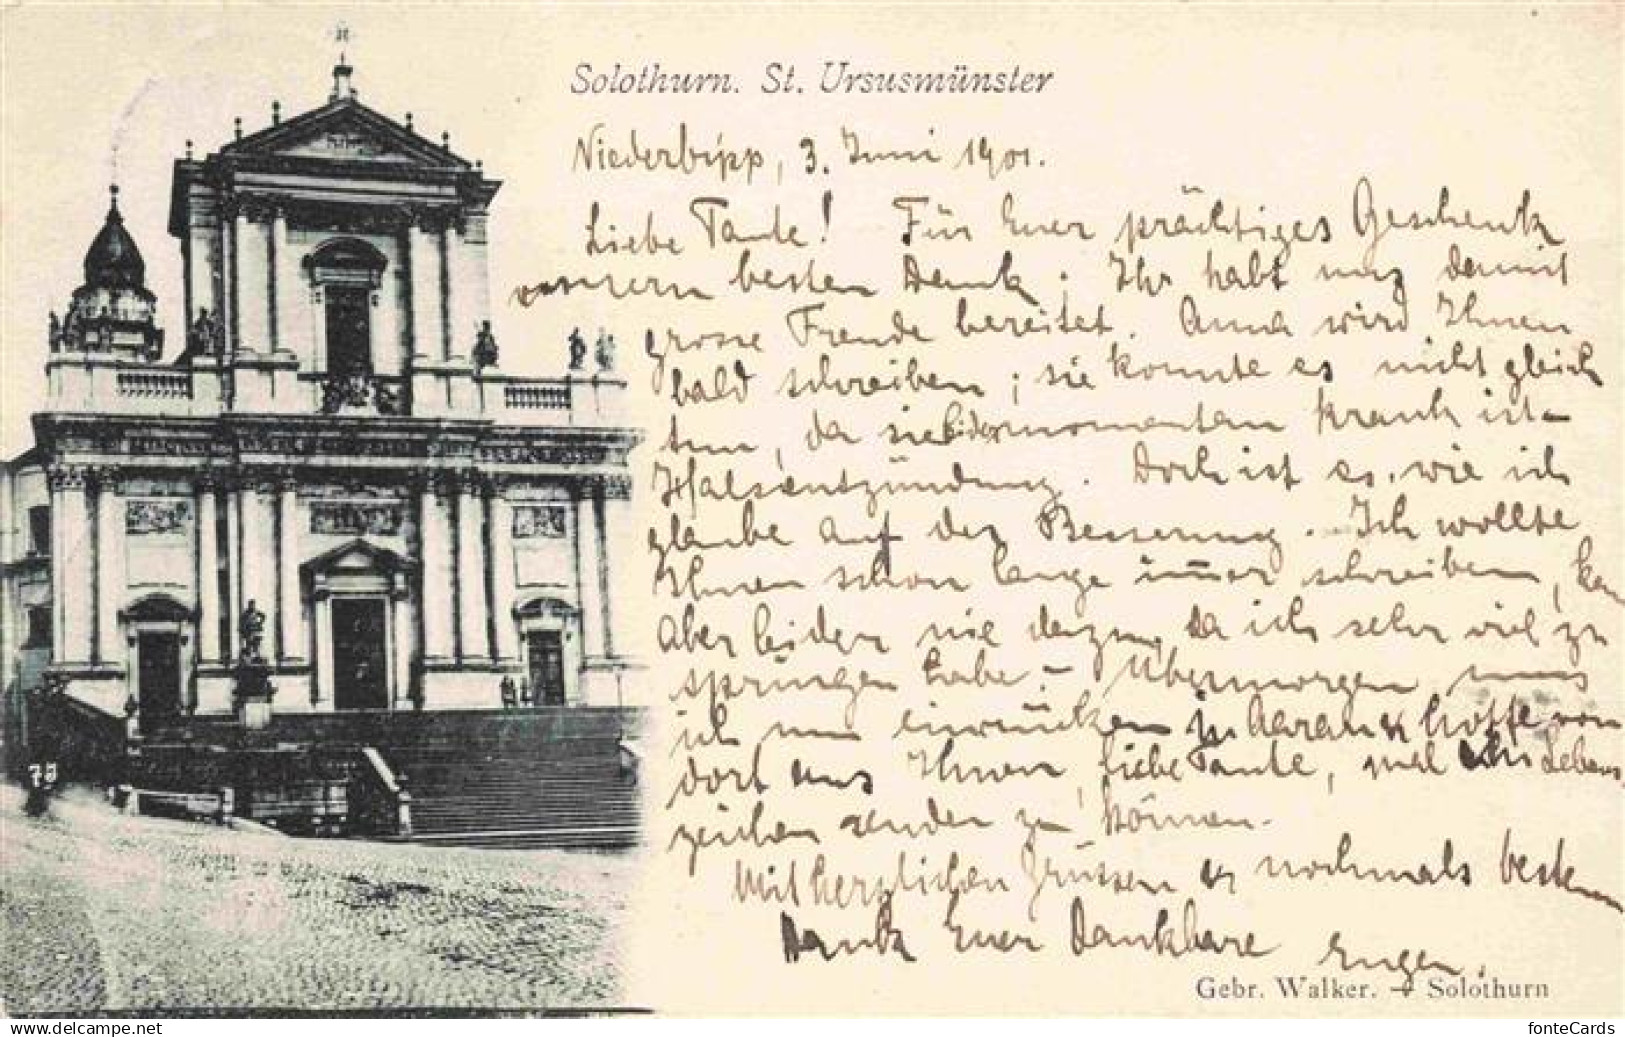 Solothurn. St. Ursusmünster
Niederbipp, 3. Juni 1901.
Liebe Tante! Für Euer prächtiges Geschenk
unsern besten Dank. Ihr habt uns damit
grosse Freude bereitet. Anna wird Ihnen
bald schreiben; sie konnte es nicht gleich
tun, da sie leider momentan krank ist –
Halsentzündung. Doch ist es, wie ich
glaube auf der Besserung. Ich wollte
Ihnen schon lange immer schreiben, kam
aber leider nie dazu, da ich sehr viel zu
springen habe – Übermorgen muss
ich nun einrücken in Aarau & hoffe von
dort aus Ihnen, liebe Tante, mal ein Lebens
zeichen senden zu können.
Mit herzlichen Grüssen & nochmals bestem
Dank Euer dankbare Eugen.
Gebr. Walker. – Solothurn
75
www.delcampe.net
fonteCards